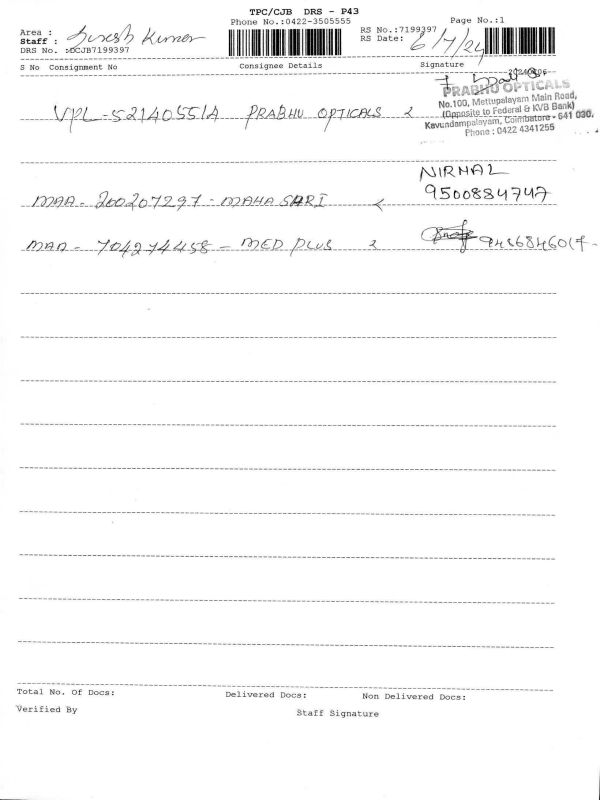 TPC/CJB DRS - P43
Phone No.:0422-3505555 Page No.:1
Area :
Staff : Suresh Kumar
RS No.:7199397
RS Date: 6/7/24
DRS No. :DCJB7199397
S No Consignment No Consignee Details Signature
PRABHU OPTICALS
No.100, Mettupalayam Main Road,
(Opposite to Federal & KVB Bank)
Kavundampalayam, Coimbatore - 641 030.
Phone : 0422 4341255
VPL-521405514 PRABHU OPTICALS 2
NIRMAL
9500884747
MAA - 200207297 - MAHA SARI
MAA - 704274458 - MED PLUS 2
Total No. Of Docs: Delivered Docs: Non Delivered Docs:
Verified By Staff Signature